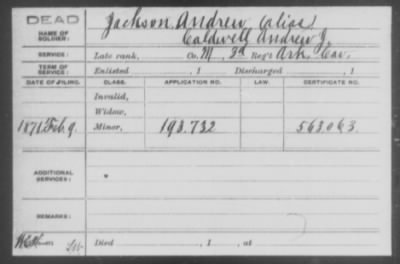 DEAD
Jackson, Andrew (alias)
NAME OF SOLDIER:
Caldwell Andrew J.
SERVICE:
Late rank, Co. M, 3d Reg't Ark. Cav.
TERM OF SERVICE:
Enlisted , 1 Discharged , 1
DATE OF FILING. CLASS. APPLICATION NO. LAW. CERTIFICATE NO.
Invalid,
Widow,
1871 Feb. 9. Minor, 193.732 563063
ADDITIONAL SERVICES:
REMARKS:
Died , 1 , at